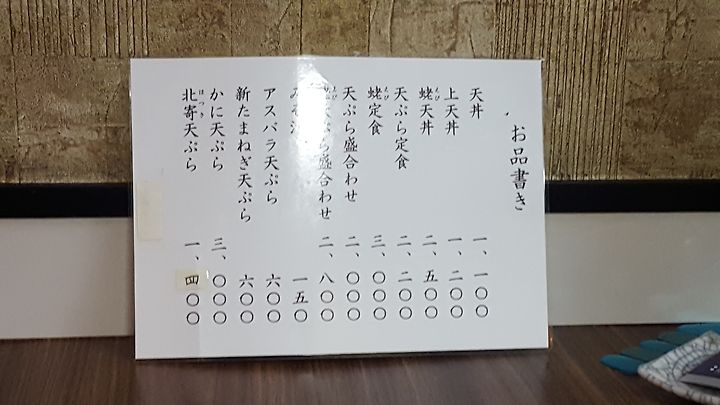 お品書き
天丼 一、一〇〇
上天丼 一、二〇〇
蛯天丼 二、五〇〇
えび
天ぷら定食 二、二〇〇
蛯定食 三、〇〇〇
えび
天ぷら盛合わせ 二、〇〇〇
ぷら盛合わせ 二、八〇〇
一五〇
アスパラ天ぷら 六〇〇
新たまねぎ天ぷら 六〇〇
かに天ぷら 三、〇〇〇
北寄天ぷら 一、四〇〇
ほっき